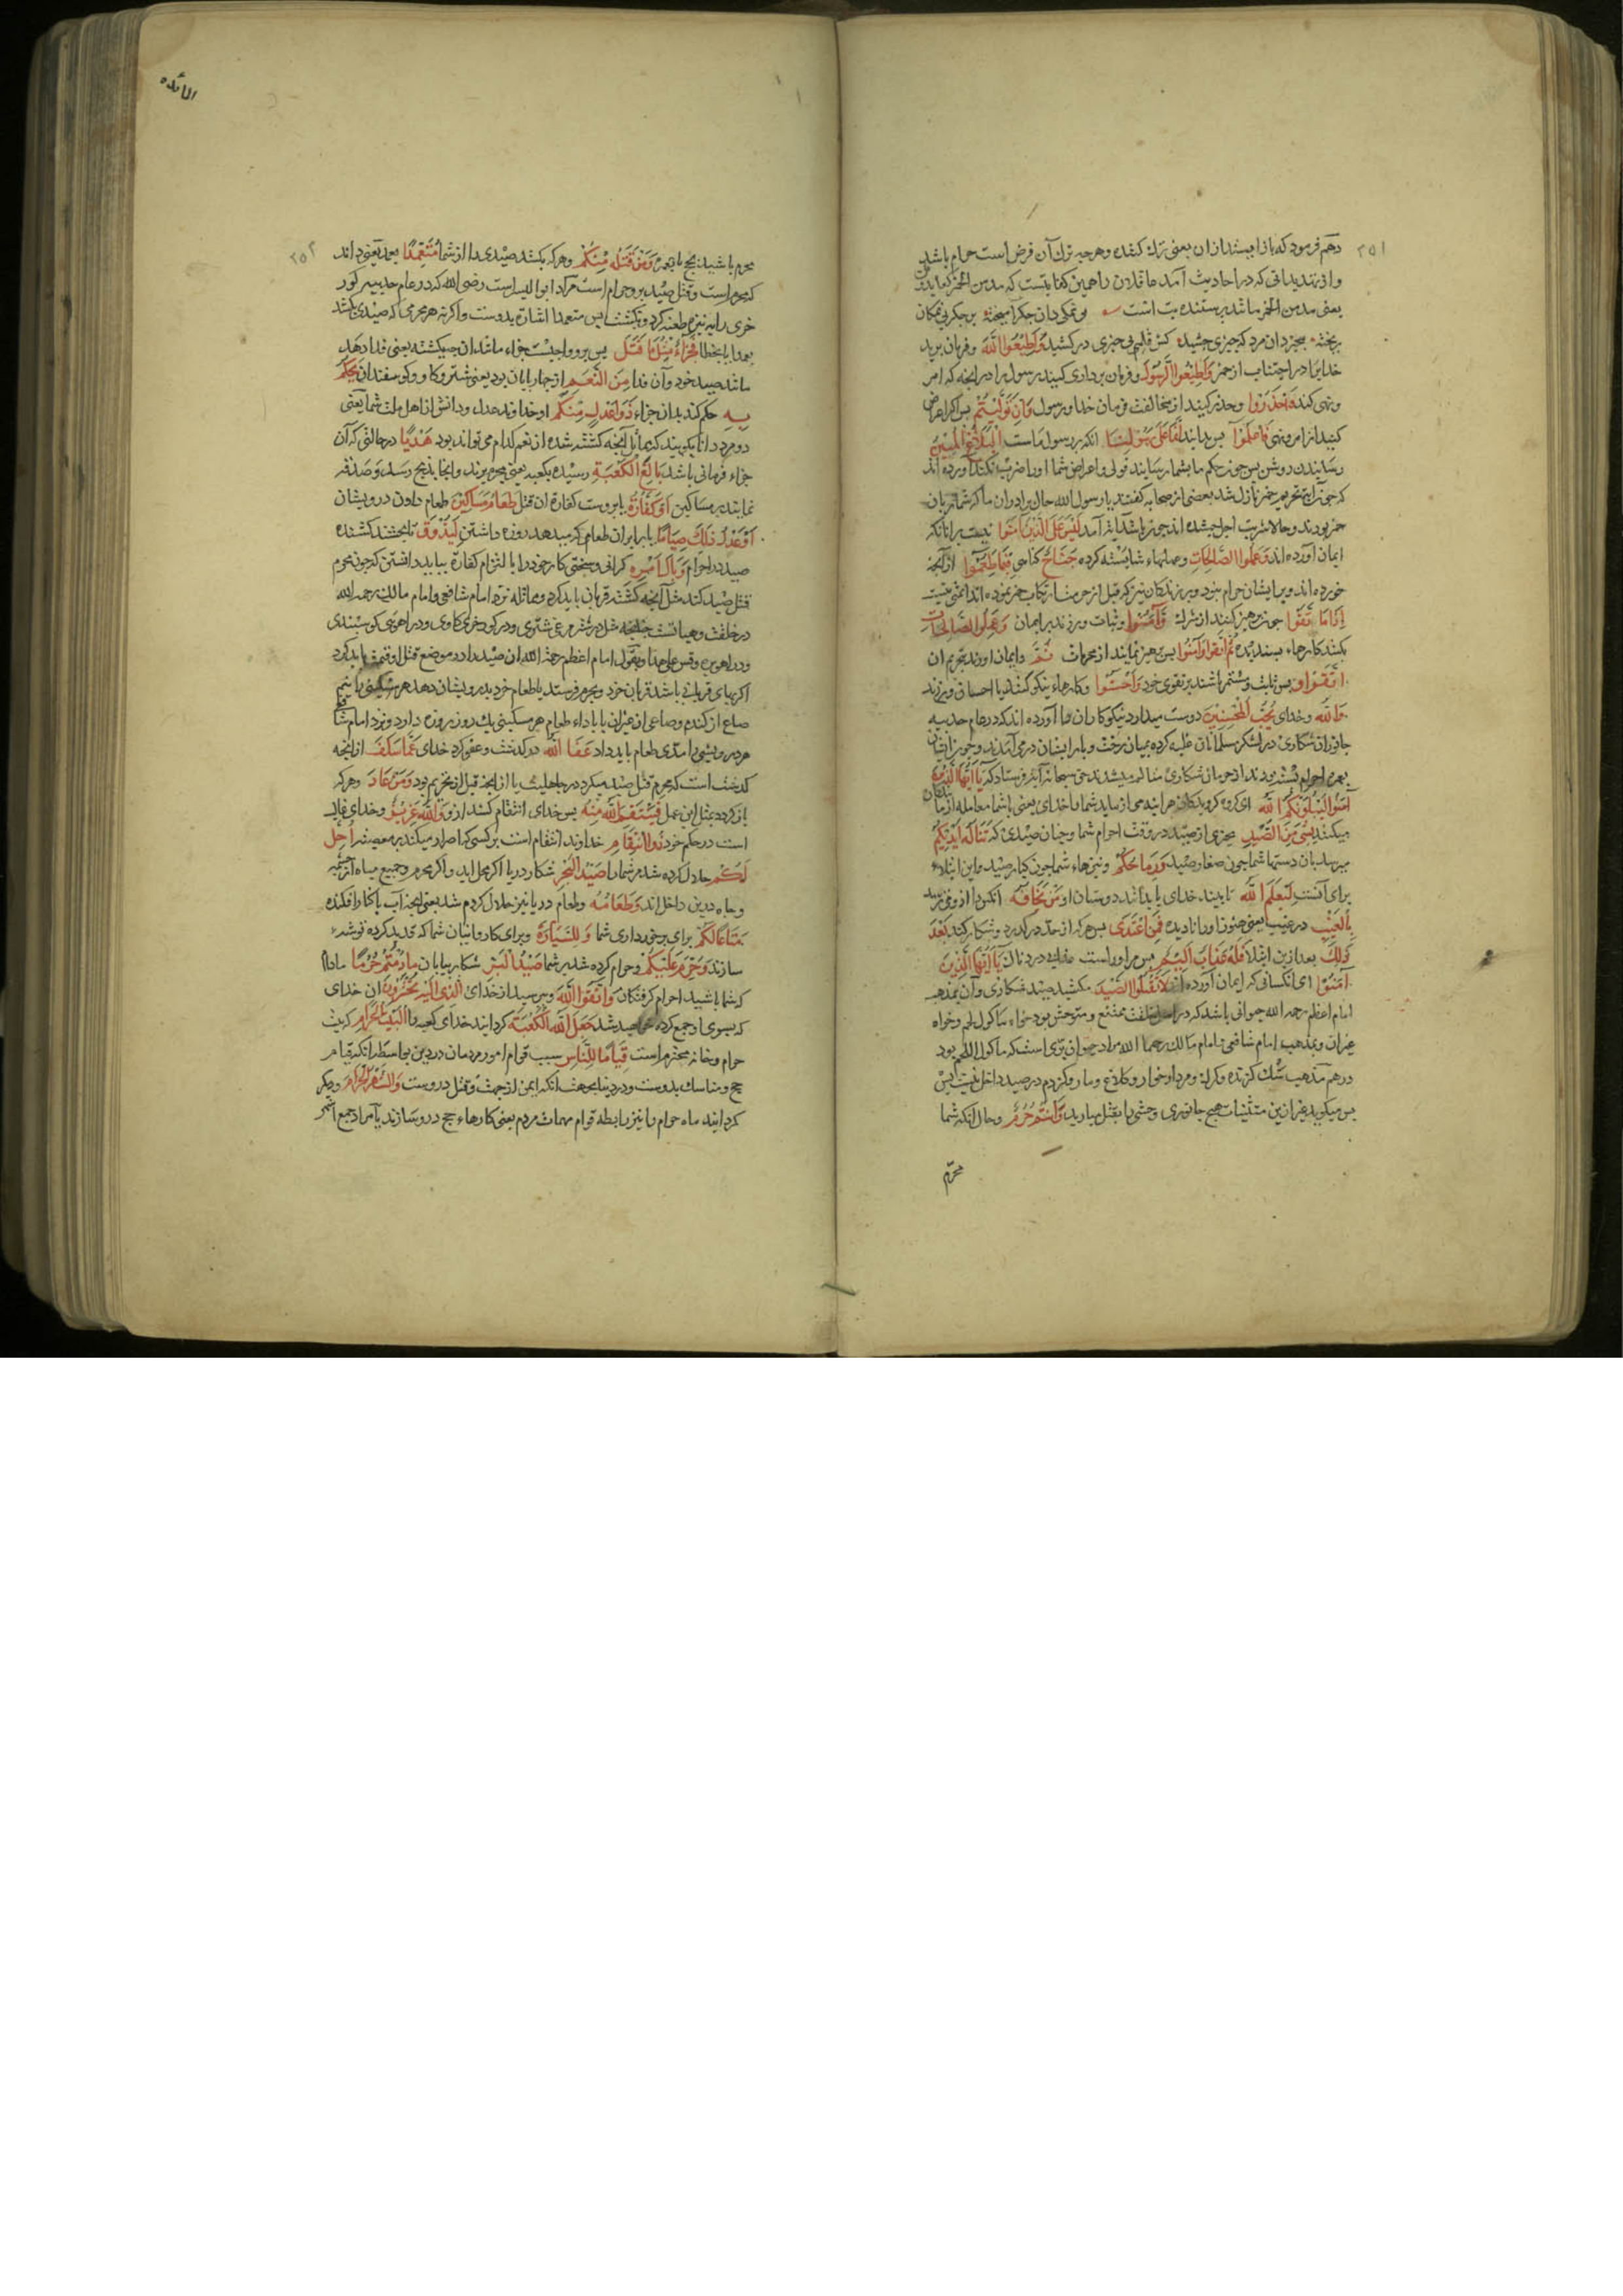 ۲۵۱
دهم فرمود که باز ایستید از آن یعنی ترک کنید و هر چه ترک آن فرض است حرام باشد
و از تهدیداتی که در احادیث آمده عاقلان را همین کفایتست که مدمن الخمر کعابد وثن
یعنی مدمن الخمر مانند پرستنده بت است
خدایرا در اجتناب از خمر وَاَطِیعُوا الرَّسُولَ و فرمان برداری کنید رسول را در آنچه که امر
و نهی کند وَاحْذَرُوا و حذر کنید از مخالفت فرمان خدا و رسول فَاِنْ تَوَلَّیْتُمْ پس اگر اعراض
کنید از امر و نهی فَاعْلَمُوا پس بدانید اَنَّمَا عَلَی رَسُولِنَا آنکه بر رسول ماست الْبَلَاغُ الْمُبِینُ
رسانیدن روشن پس چون حکم ما بشما رسانید تولی و اعراض شما او را ضرر نکند آورده اند
که چون آیت تحریم خمر نازل شد بعضی از صحابه گفتند یا رسول الله حال برادران ما که شاربان
خمر بودند و حالا شربت اجل چشیده اند چون باشد آیه آمد لَیْسَ عَلَی الَّذِینَ آمَنُوا نیست بر آنانکه
ایمان آورده اند وَعَمِلُوا الصَّالِحَاتِ و عملهاء شایسته کرده جُنَاحٌ گناهی فِیمَا طَعِمُوا از آنچه
خورده اند و بر ایشان حرام نبود
اِذَا مَا اتَّقَوْا چون پرهیز کنند از شرک وَآمَنُوا و ثبات ورزند بر ایمان وَعَمِلُوا الصَّالِحَاتِ
بکنند کارهاء پسندیده ثُمَّ اتَّقَوْا وَآمَنُوا پس پرهیز نمایند از محرمات و ایمان آورند بتحریم آن ثُمَّ
اتَّقَوْا پس ثابت و مستمر باشند بر تقوی خود وَاَحْسَنُوا و کارهاء نیکو کنند یا احسان ورزند
وَاللهُ و خدای یُحِبُّ الْمُحْسِنِینَ دوست میدارد نیکوکاران را آورده اند که در عام حدیبیه
جانوران شکاری در لشکر مسلمانان غلبه کرده بمیان رخت و بار ایشان در می آمدند و چون ایشان
بعمره احرام بسته بودند از حرمان شکاری متالم میشدند حق سبحانه آیه فرستاد که یَا اَیُّهَا الَّذِینَ
آمَنُوا لَیَبْلُوَنَّکُمُ اللهُ ای گروه گرویدگان هر آینه می آزماید شما را خدای یعنی با شما معامله آزمایندگان
میکند بِشَیْءٍ مِنَ الصَّیْدِ بچیزی از صید در وقت احرام شما و چنان صیدی که تَنَالُهُ اَیْدِیکُمْ
میرسد بآن دستهاء شما چون صغار صید وَرِمَاحُکُمْ و نیزهاء شما چون کبار صید و این ابتلاء
برای آنست لِیَعْلَمَ اللهُ تا بیند خدای یا بدانند دوستان او مَنْ یَخَافُهُ آنکس را که از وی ترسد
بِالْغَیْبِ در غیب یعنی هنوز او را نادیده فَمَنِ اعْتَدَی پس هر که از حد در گذرد و شکار کند بَعْدَ
ذَلِکَ بعد ازین ابتلا فَلَهُ عَذَابٌ اَلِیمٌ پس مر او راست عذابی دردناک یَا اَیُّهَا الَّذِینَ
آمَنُوا ای آنکسانی که ایمان آورده اید لَا تَقْتُلُوا الصَّیْدَ مکشید صید شکاری و آن بمذهب
امام اعظم رحمه الله حیوانی باشد که در اصل خلقت ممتنع و متوحش بود خواه مأکول لحم و خواه
غیر آن و بمذهب امام شافعی و امام مالک رحمهما الله مراد حیوان بری است که مأکول اللحم بود
در هر مذهب سگ گزنده و گرگ و مردار خوار و کلاغ و مار و کژدم در صید داخل نیست پس
پس میگوید غیر ازین مستثنیات هیچ جانوری وحشی را بقتل میارید وَاَنْتُمْ حُرُمٌ و حال آنکه شما
محرم
المائده
۲۵۲
محرم باشید بحج یا بعمره وَمَنْ قَتَلَهُ مِنْکُمْ و هر که بکشد صیدی را از شما مُتَعَمِّدًا بعمد یعنی داند
که محرم است و قتل صید برو حرام است مراد ابو الیسر است رضی الله که در عام حدیبیه گور
خری را به نیزه طعنه کرد و بکشت پس متعمدا اشاره بدوست و اگر نه هر محرمی که صیدی بکشد
بعمد یا بخطا فَجَزَاءٌ مِثْلُ مَا قَتَلَ پس برو واجبست جزاء مانند آن چه کشته یعنی فدا دهد
مانند صید خود و آن فدا مِنَ النَّعَمِ از چهارپایان بود یعنی شتر و گاو و گوسفند آن یَحْکُمُ
بِهِ حکم کند بدان جزاء ذَوَا عَدْلٍ مِنْکُمْ دو خداوند عدل و دانش از اهل ملت شما یعنی
دو مرد دانا بگویند که مماثل آنچه کشته شده از نعم کدام می تواند بود هَدْیًا در حالتی که آن
جزاء قربانی باشد بَالِغَ الْکَعْبَةِ رسیده بکعبه یعنی بحرم برند و آنجا بذبح رسد و صدقه
نمایند بر مساکین اَوْ کَفَّارَةٌ یا بروست کفارة آن قتل طَعَامُ مَسَاکِینَ طعام دادن درویشان
اَوْ عَدْلُ ذَلِکَ صِیَامًا یا برابر آن طعام که میدهد روزه داشتن لِیَذُوقَ تا بچشد کشنده
صید در احرام وَبَالَ اَمْرِهِ گرانی و سختی کار خود را بالتزام کفارة بباید دانستن که چون محرم
قتل صید کند مثل آنچه کشته قربان باید کرد و مماثله نزد امام شافعی و امام مالک رحمه الله
در خلقت و هیأتست
صاع از گندم و صاعی از غیر آن یا باداء طعام هر مسکینی یک روز روزه دارد و نزد امام شافعی
هر درویشی را مدی طعام باید داد عَفَا اللهُ در گذشت و عفو کرد خدای عَمَّا سَلَفَ از آنچه
گذشته است که محرم قتل صید میکرد در جاهلیت یا از آنچه قبل از تحریم بود وَمَنْ عَادَ و هر که
باز گردد بمثل این عمل فَیَنْتَقِمُ اللهُ مِنْهُ پس خدای انتقام کشد ازو وَاللهُ عَزِیزٌ و خدای غالب
است در حکم خود ذُو انْتِقَامٍ خداوند انتقام است بر کسی که اصرار میکند بر معصیت اُحِلَّ
لَکُمْ حلال کرده شد مر شما را صَیْدُ الْبَحْرِ شکار دریا اگر محل اید و اگر محرم و جمیع میاه از چشمه
و چاه درین داخل اند وَطَعَامُهُ و طعام دریا نیز حلال کردم شد یعنی آنچه آب بکنار افکنده
مَتَاعًا لَکُمْ برای برخورداری شما وَلِلسَّیَّارَةِ و برای کاروانیان شما که قدید کرده توشه
سازند وَحُرِّمَ عَلَیْکُمْ و حرام کرده شد بر شما صَیْدُ الْبَرِّ شکار بیابان مَا دُمْتُمْ حُرُمًا مادام
که شما باشید احرام گرفتگان وَاتَّقُوا اللهَ و بترسید از خدای الَّذِی اِلَیْهِ تُحْشَرُونَ آن خدای
که بسوی او جمع کرده خواهید شد جَعَلَ اللهُ الْکَعْبَةَ گردانید خدای کعبه را الْبَیْتَ الْحَرَامَ که بیت
حرام و خانه محترم است قِیَامًا لِلنَّاسِ سبب قوام امور مردمان در دین بواسطه آنکه قیام
حج و مناسک بدوست و در دنیا بجهت آنکه ایمن از نهب و قتل دروست وَالشَّهْرَ الْحَرَامَ و دیگر
گردانید ماه حرام را نیز رابطه قوام مهمات مردم یعنی کارهاء حج درو سازند یا مراد جمع اشهر